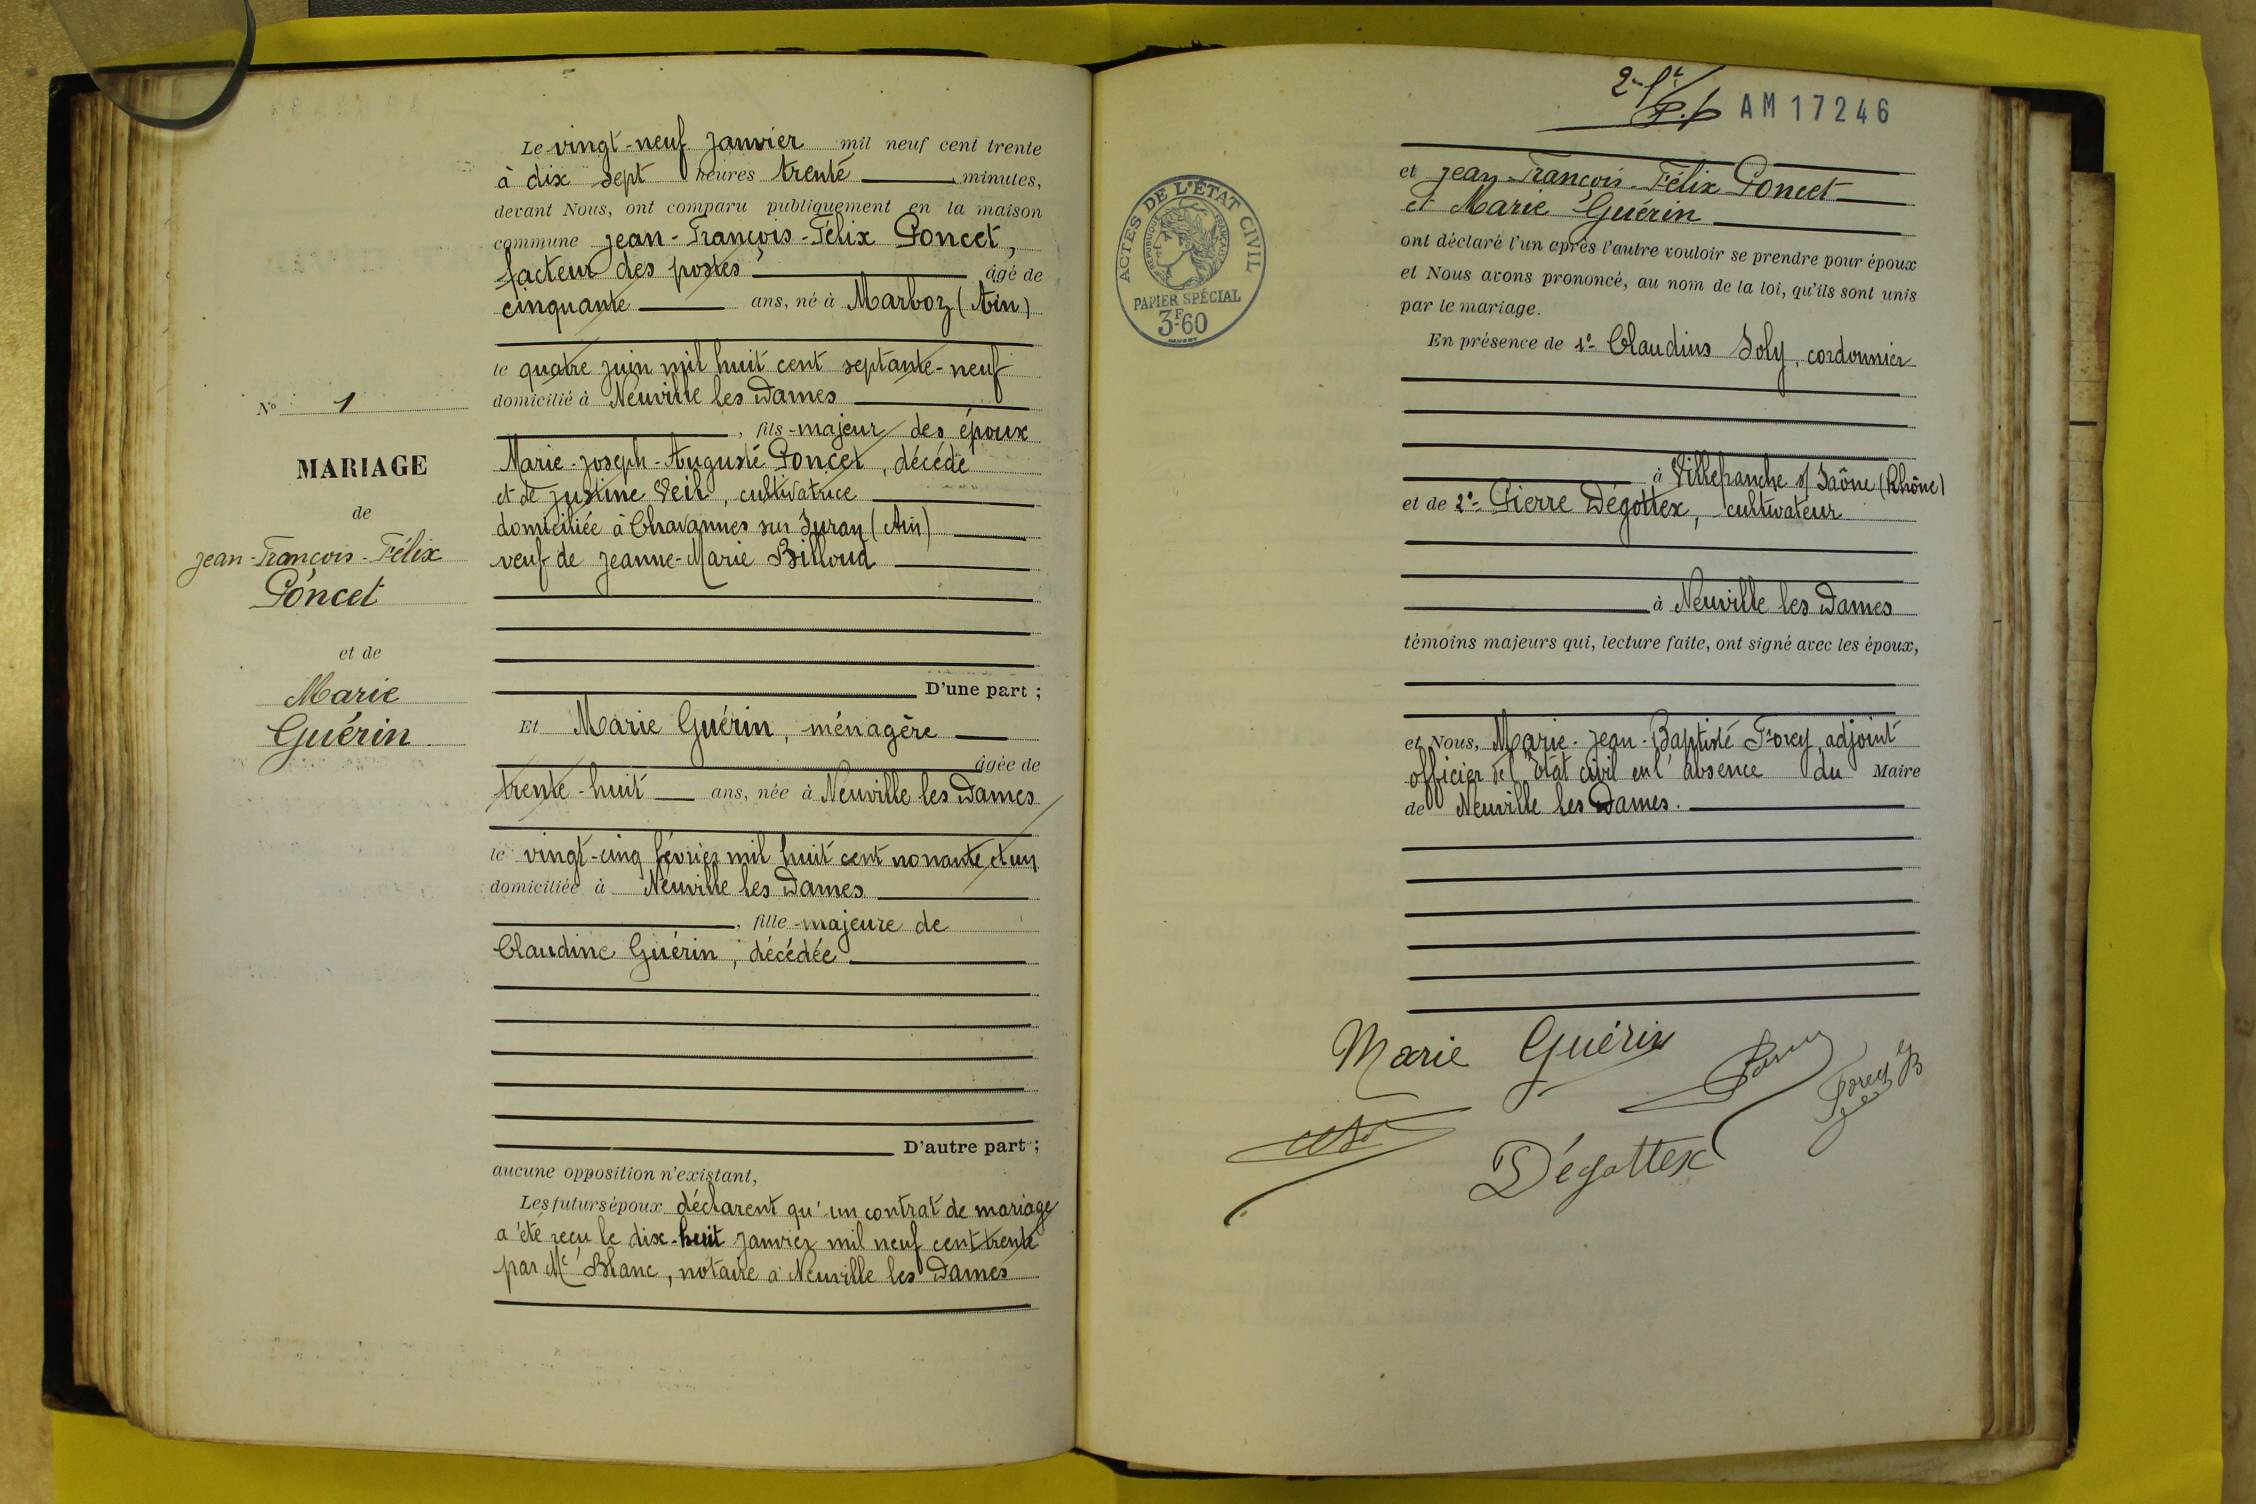 Le vingt-neuf janvier mil neuf cent trente
à dix sept heures trente minutes,
devant Nous, ont comparu publiquement en la maison
commune Jean-François-Félix Poncet,
facteur des postes âgé de
cinquante ans, né à Marboz (Ain)
le quatre juin mil huit cent septante-neuf
domicilié à Neuville les Dames
, fils majeur des époux
Marie-Joseph-Auguste Poncet, décédé
et de Justine Veil, cultivatrice
domiciliée à Chavannes sur Suran (Ain)
veuf de Jeanne-Marie Billoud
D'une part ;
Et Marie Guérin, ménagère
âgée de
trente-huit ans, née à Neuville les Dames
le vingt-cinq février mil huit cent nonante et un
domiciliée à Neuville les Dames
, fille majeure de
Claudine Guérin, décédée
D'autre part ;
aucune opposition n'existant,
Les futurs époux déclarent qu'un contrat de mariage
a été reçu le dix-huit janvier mil neuf cent trente
par Me Blanc, notaire à Neuville les Dames
No 1
MARIAGE
de
Jean-François-Félix
Poncet
et de
Marie
Guérin
AM 17246
et Jean-François-Félix Poncet
et Marie Guérin
ont déclaré l'un après l'autre vouloir se prendre pour époux
et Nous avons prononcé, au nom de la loi, qu'ils sont unis
par le mariage.
En présence de 1o- Claudius Soly, cordonnier
à Villefranche s/ Saône (Rhône)
et de 2o- Pierre Dégottex, cultivateur
à Neuville les Dames
témoins majeurs qui, lecture faite, ont signé avec les époux,
et Nous, Marie-Jean-Baptiste Forey, adjoint
officier de l'état civil en l'absence du Maire
de Neuville les Dames.
ACTES DE L'ÉTAT CIVIL
RÉPUBLIQUE FRANÇAISE
PAPIER SPÉCIAL
3F60
Marie Guérin
Forey JB
Dégottex